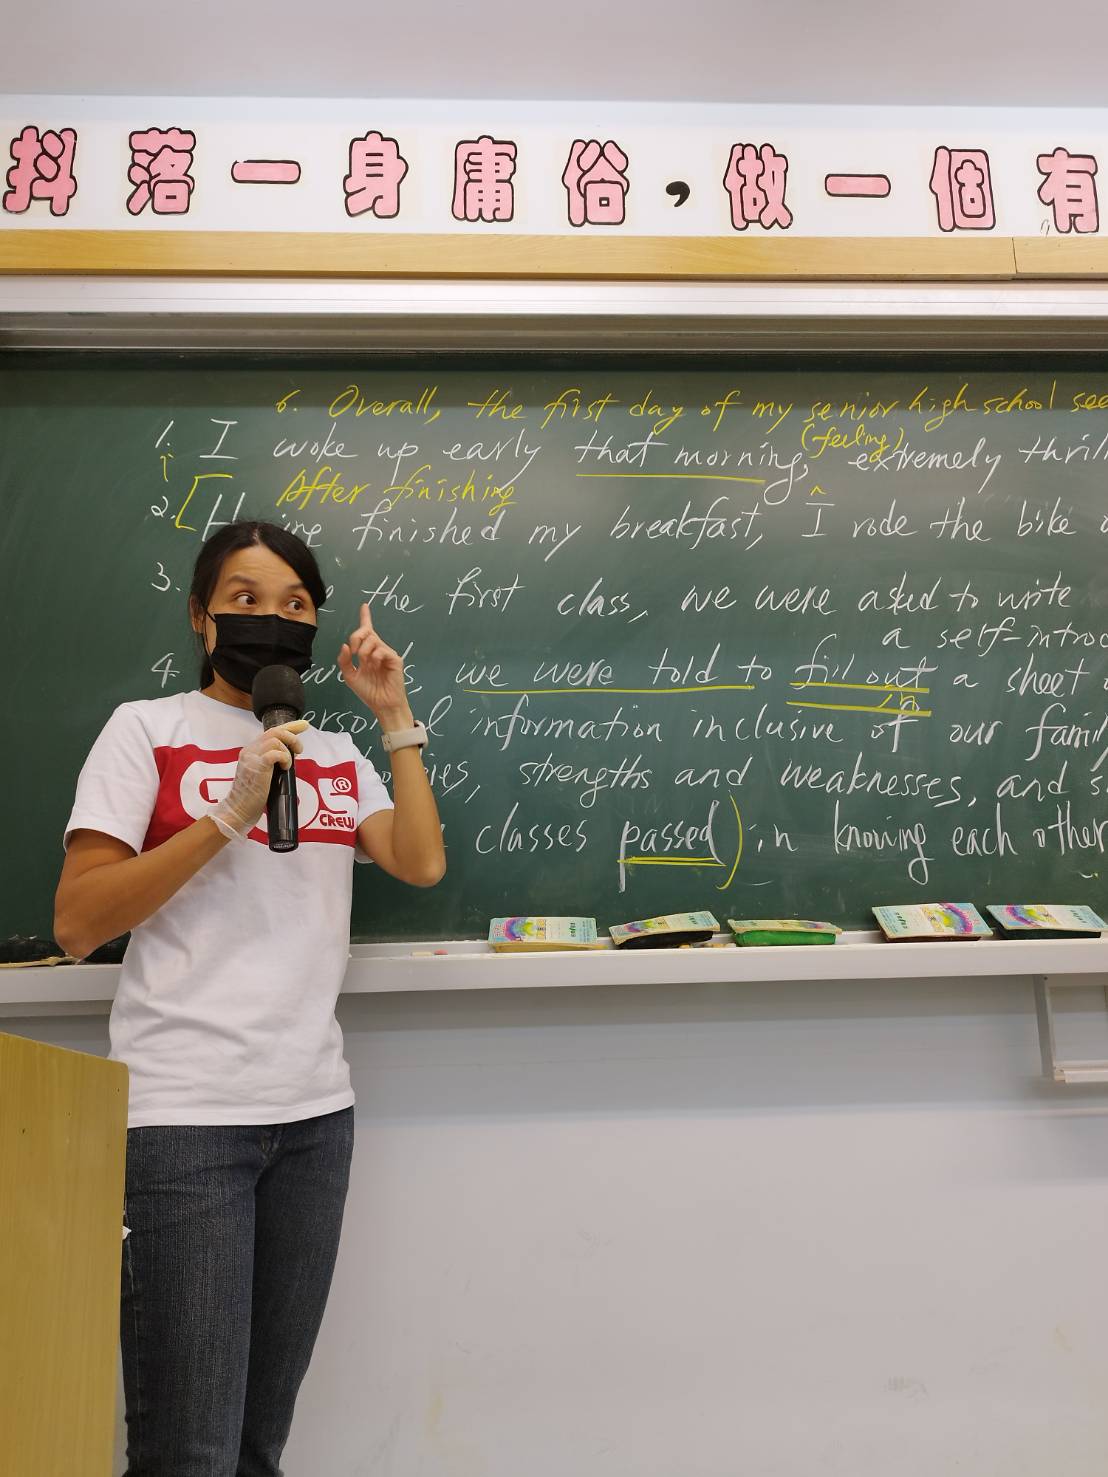 抖落一身庸俗，做一個有
6. Overall, the first day of my senior high school see
(feeling)
1. I woke up early that morning, extremely thrill
After finishing
2. finished my breakfast, I rode the bike
3. the first class, we were asked to write
a self-introd
4. we were told to fill out a sheet
in
information inclusive of our family
strengths and weaknesses, and s
classes passed) in knowing each other
CREW
®